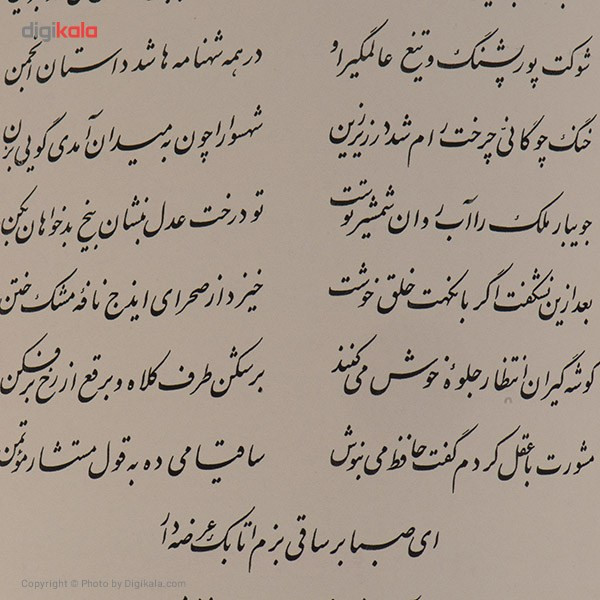 digikala
شوکت پور پشنگ و تیغ عالمگیر او در همه شهنامه ها شد داستان انجمن
خنگ چوگانی چرخت رام شد در زیر زین شهسوارا چون به میدان آمدی گویی بزن
جویبار ملک را آب روان شمشیر توست تو درخت عدل بنشان بیخ بدخواهان بکن
بعد ازین نشکفت اگر با نکهت خلق خوشت خیزد از صحرای ایذج نافهٔ مشک ختن
گوشه گیران انتظار جلوهٔ خوش می کنند برشکن طرف کلاه و برقع از رخ برفکن
مشورت با عقل کردم گفت حافظ می بنوش ساقیا می ده به قول مستشار مؤتمن
ای صبا بر ساقی بزم اتابک عرضه دار
Copyright © Photo by Digikala.com